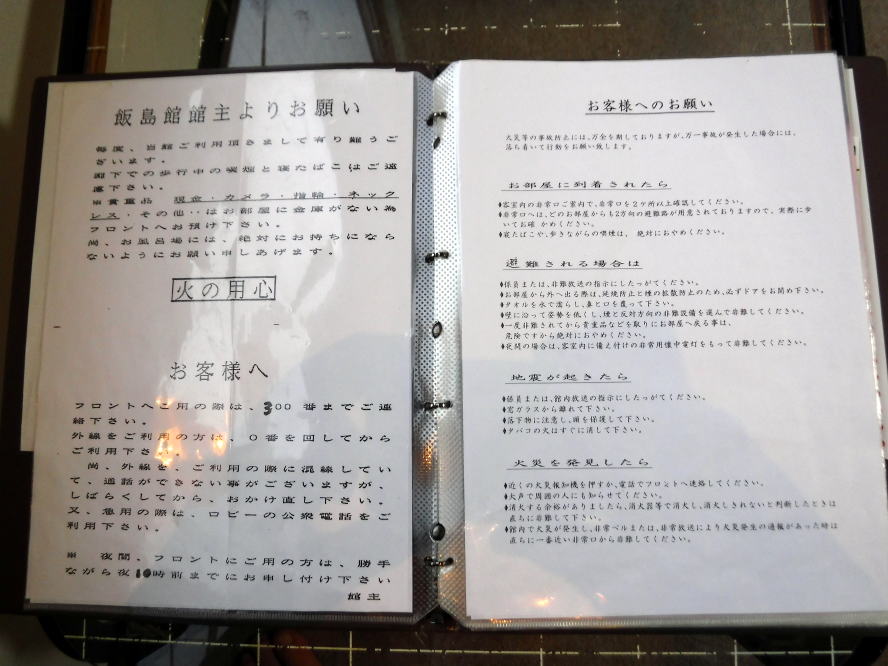 飯島館館主よりお願い
毎度、当館ご利用頂きまして有り難うご
ざいます。
廊下での歩行中の喫煙と寝たばこはご遠
慮下さい。
※貴重品　現金・カメラ・指輪・ネック
レス・その他‥はお部屋に金庫がない為
フロントへお預け下さい。
尚、お風呂場には、絶対にお持ちになら
ないようにお願い申しあげます。
火の用心
お客様へ
フロントへご用の際は、300番までご連
絡下さい。
外線をご利用の方は、0番を回してから
ご利用下さい。
尚、外線を、ご利用の際に混線してい
て、通話ができない事がございますが、
しばらくしてから、おかけ直し下さい。
又、急用の際は、ロビーの公衆電話をご
利用下さい。
※　夜間、フロントにご用の方は、勝手
ながら夜10時前までにお申し付け下さい
館主
お客様へのお願い
火災等の事故防止には、万全を期しておりますが、万一事故が発生した場合には、
落ち着いて行動をお願い致します。
お部屋に到着されたら
♦客室内の非常口ご案内で、非常口を2ケ所以上確認してください。
♦非常口へは、どのお部屋からも2方向の避難路が用意されておりますので、実際に歩
いてお確 かめください。
♦寝たばこや、歩きながらの喫煙は、 絶対におやめください。
避難される場合は
♦係員または、非難放送の指示にしたっがてください。
♦お部屋から外へ出る際は、延焼防止と煙の拡散防止のため、必ずドアをお閉め下さい。
♦タオルを水で濡らし、鼻と口を覆って下さい。
♦壁に沿って姿勢を低くし、煙と反対方向の非難設備を選んで非難してください。
♦一度非難されてから貴重品などを取りにお部屋へ戻る事は、
危険ですから絶対におやめください。
♦夜間の場合は、客室内に備え付けの非常用懐中電灯をもって非難してください。
地震が起きたら
♦係員または、館内放送の指示にしたっがてください。
♦窓ガラスから離れて下さい。
♦落下物に注意し、頭を保護して下さい。
♦タバコの火はすぐに消して下さい。
火災を発見したら
♦近くの火災報知機を押すか、電話でフロントへ連絡してください。
♦大声で周囲の人にも知らせてください。
♦消火する余裕がありましたら、消火器等で消火し、消火しきれないと判断したときは
直ちに非難して下さい。
♦館内で火災が発生し、非常ベルまたは、非常放送により火災発生の通報があった時は
直ちに一番近い非常口から非難してください。